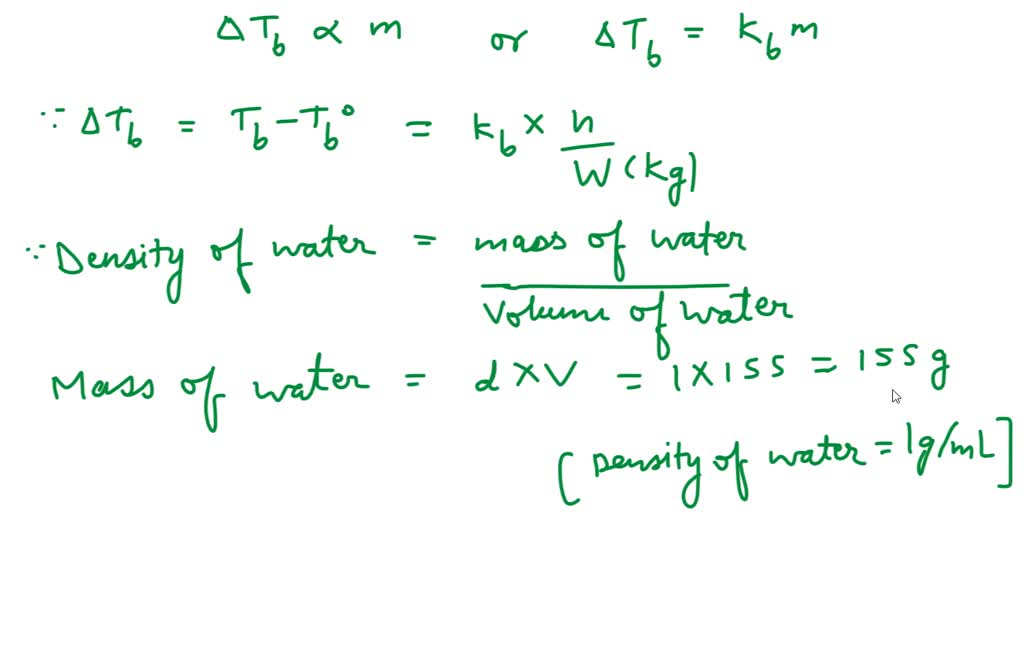 ΔT_b ∝ m or ΔT_b = K_b m
∵ ΔT_b = T_b - T_b° = K_b × n / W (kg)
∵ Density of water = mass of water / Volume of water
Mass of water = d × V = 1 × 155 = 155 g
[Density of water = 1g/mL]